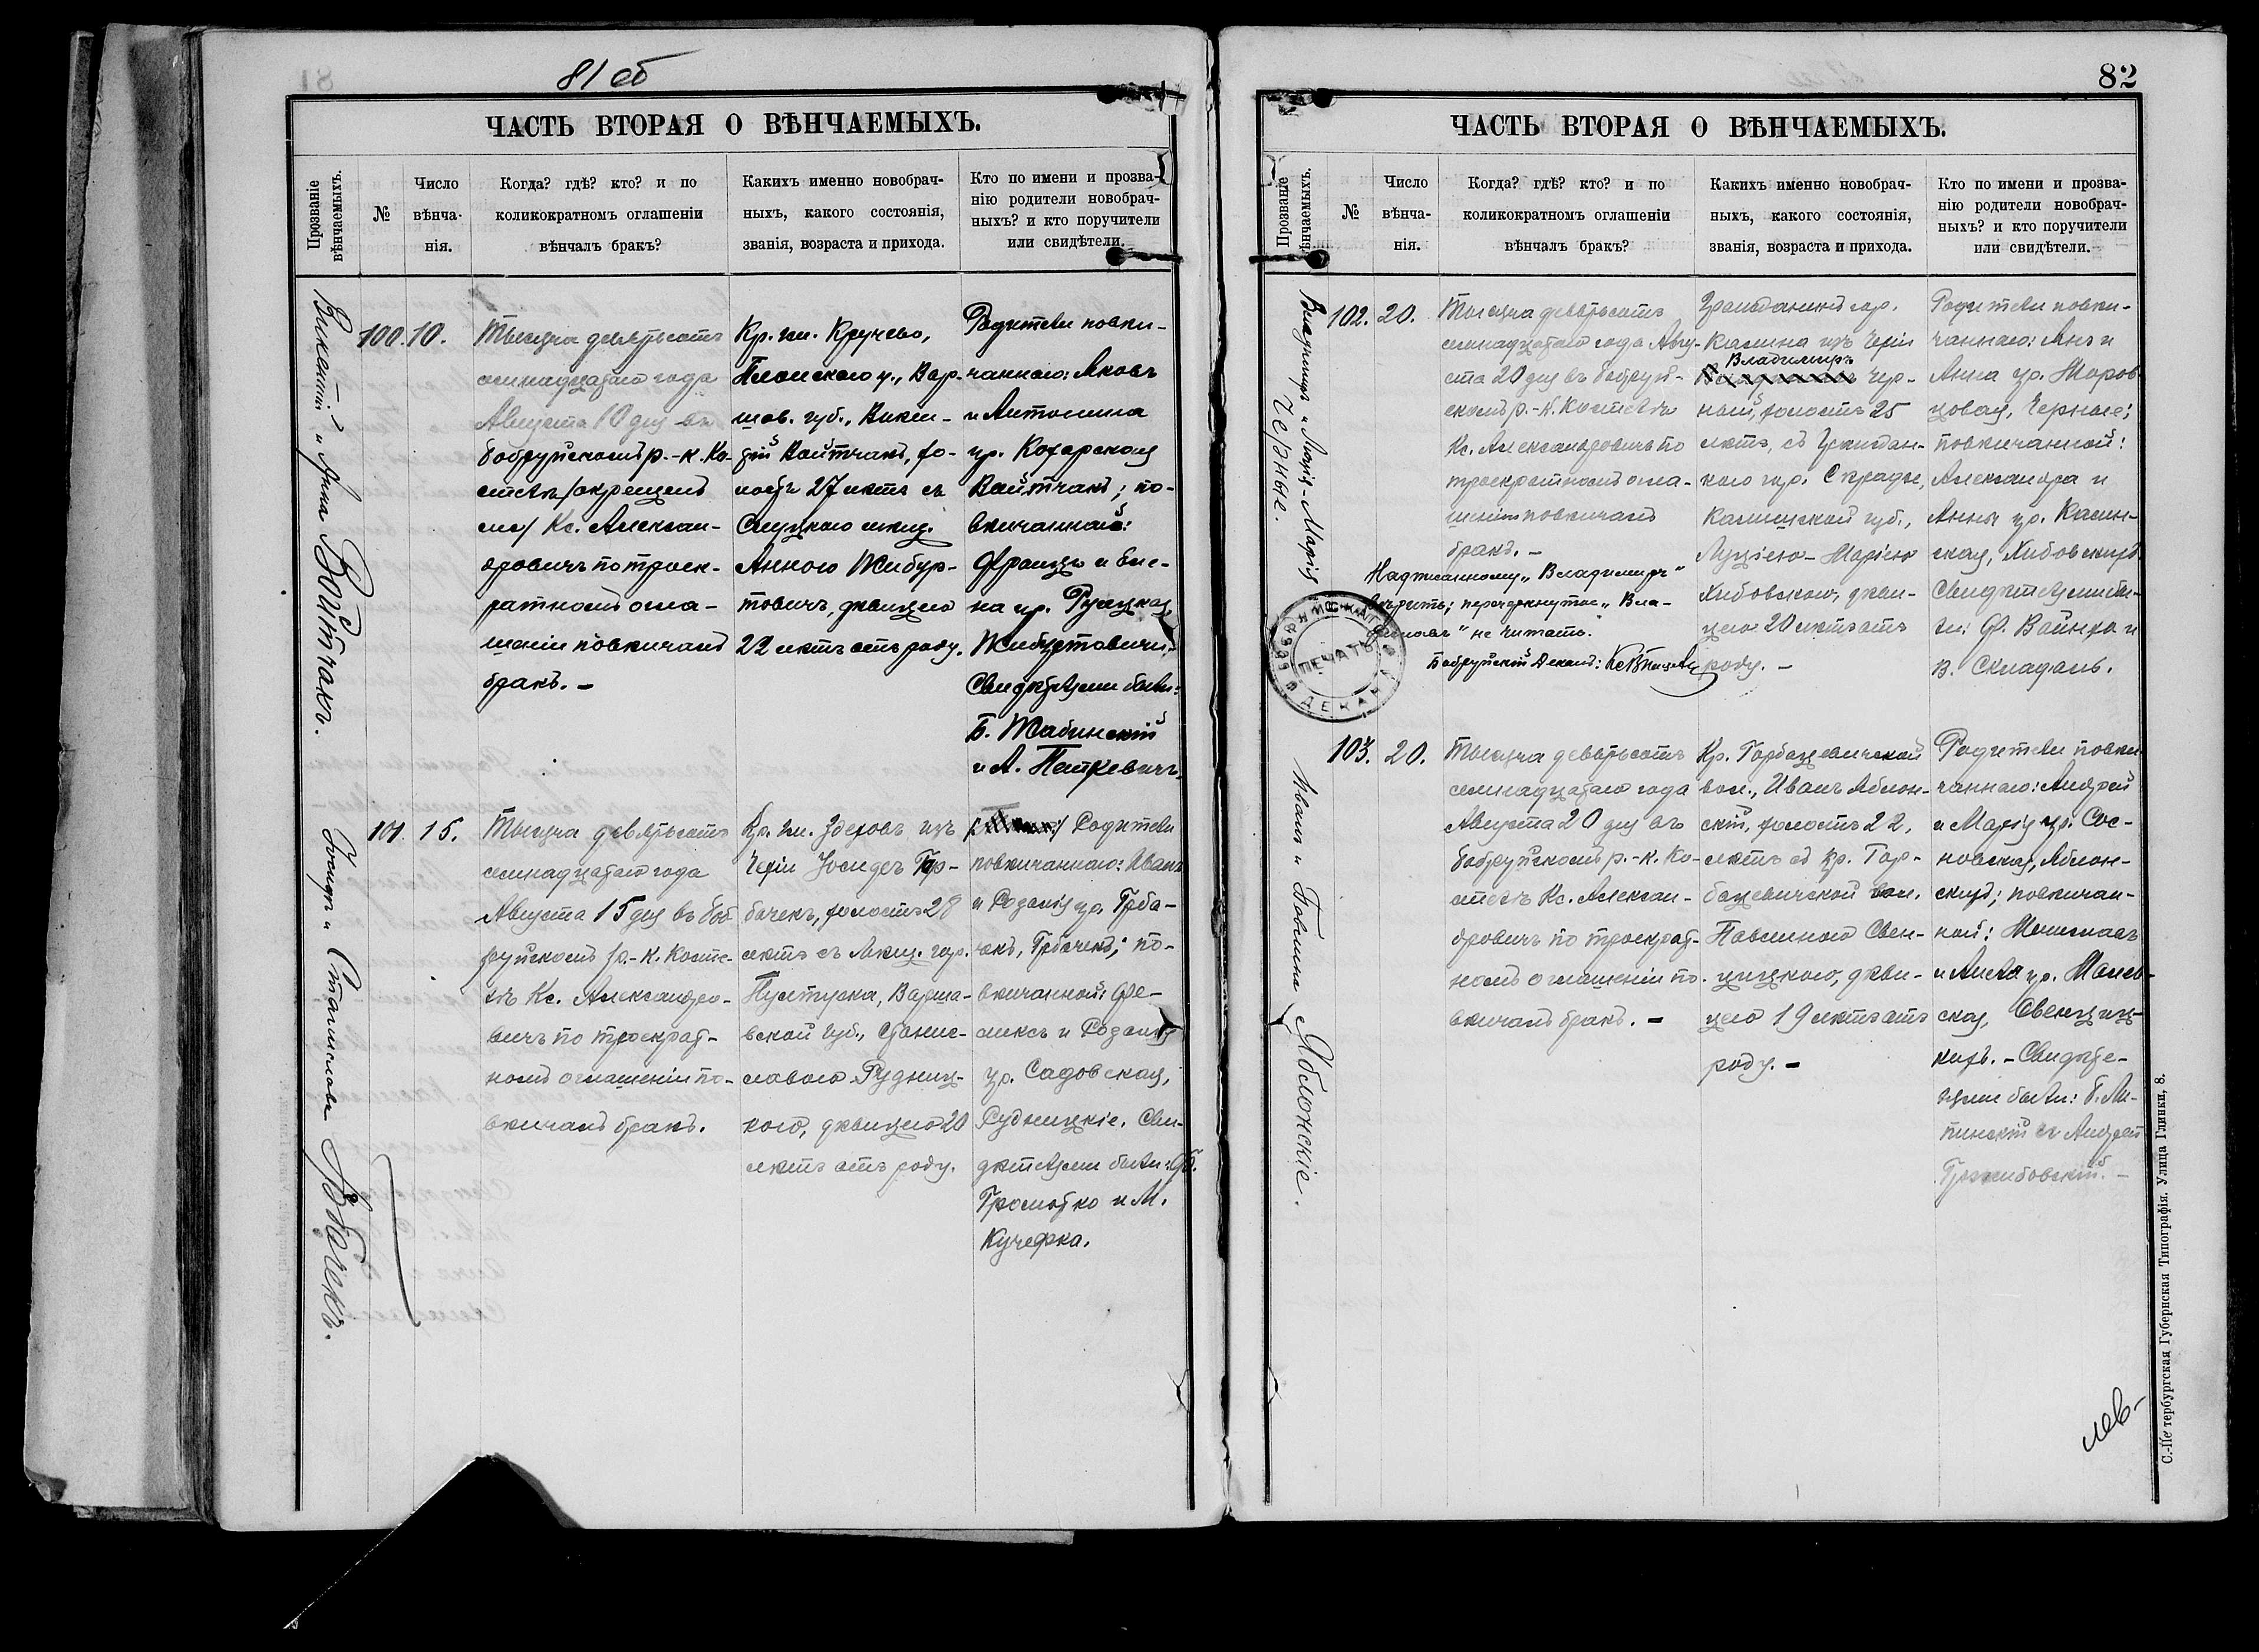 81 об
ЧАСТЬ ВТОРАЯ О ВѢНЧАЕМЫХЪ.
Прозваніе вѣнчаемыхъ.
№
Число вѣнча-нія.
Когда? гдѣ? кто? и по
коликократномъ оглашеніи
вѣнчалъ бракъ?
Какихъ именно новобрач-
ныхъ, какого состоянія,
званія, возраста и прихода.
Кто по имени и прозва-
нію родители новобрач-
ныхъ? и кто поручители
или свидѣтели.
Викентій и Анна Войтчакъ.
100. 10.
Тысяча девятьсотъ
семнадцатаго года
Августа 10 дня въ
Бобруйскомъ р.-к. Ко-
стелѣ
Кс. Алексан-
дровичъ по троек-
ратномъ огла-
шеніи повѣнчалъ
бракъ. –
Кр. гм. Кручево,
Плонскаго у., Вар-
шав. губ., Викен-
тій Войтчакъ, хо-
лостъ 27 лѣтъ съ
Слуцкою мѣщ.
Анною Жибур-
товичъ, дѣвицею
22 лѣтъ отъ роду.
Родители повѣн-
чаннаго: Яковъ
и Антонина
ур. Кохарская
Войтчакъ; по-
вѣнчанной:
Францъ и Еле-
на ур. Руцкая
Жибуртовичи.
Свидѣтелями были:
Б. Жабинскій
и А. Петкевичъ.
101. 15.
Тысяча девятьсотъ
семнадцатаго года
Августа 15 дня въ Боб-
руйскомъ р.-к. Косте-
лѣ Кс. Александро-
вичъ по троекрат-
номъ оглашеніи по-
вѣнчалъ бракъ.
Кр. гм. Здеховъ изъ
Чехіи Іосифъ Грб-
бачекъ, холостъ 28
лѣтъ съ мѣщ. гор.
Пултуска, Варша-
вской губ., Станис-
лавою Рудниц-
кою, дѣвицею 20
лѣтъ отъ роду.
Родители
повѣнчаннаго: Иванъ
и Розалія ур. Грба-
чекъ, Грбачекъ; по-
вѣнчанной: Фе-
ликсъ и Розалія
ур. Садовская,
Рудницкіе. Сви-
дѣтелями были:
Громотко и М.
Кучефка.
82
ЧАСТЬ ВТОРАЯ О ВѢНЧАЕМЫХЪ.
Прозваніе вѣнчаемыхъ.
№
Число вѣнча-нія.
Когда? гдѣ? кто? и по
коликократномъ оглашеніи
вѣнчалъ бракъ?
Какихъ именно новобрач-
ныхъ, какого состоянія,
званія, возраста и прихода.
Кто по имени и прозва-
нію родители новобрач-
ныхъ? и кто поручители
или свидѣтели.
Владимиръ и Луція-Марія Черные.
102. 20.
Тысяча девятьсотъ
семнадцатаго года Авгу-
ста 20 дня въ Бобруй-
скомъ р.-к. Костелѣ
Кс. Александровичъ по
троекратномъ огла-
шеніи повѣнчалъ
бракъ. –
Надписанному „Владимиръ"
вѣрить; перечеркнутое „Вла-
" не читать.
Бобруйскій Деканъ:
ПЕЧАТЬ
ДЕКАНА
Гражданинъ гор.
Калина изъ Чехіи
Владимиръ
Чер-
ный, холостъ 25
лѣтъ, съ Граждан-
кою гор. Сѣрадзе,
Калишской губ.,
Луціею-Маріею
Хибовскою, дѣви-
цею 20 лѣтъ отъ
роду. –
Родители повѣн-
чаннаго: Янъ и
Анна ур. Моров-
цовая, Черные;
повѣнчанной:
Александра и
Анны ур. Калин-
ская, Хибовскихъ
Свидѣтелями бы-
ли: Ф. Вайнра и
В. Складаль.
Иванъ и Павлина Яблонскіе.
103. 20.
Тысяча девятьсотъ
семнадцатаго года
Августа 20 дня въ
Бобруйскомъ р.-к. Ко-
стелѣ Кс. Алексан-
дровичъ по троекрат-
номъ оглашеніи по-
вѣнчалъ бракъ. –
Кр. Горбацевичской
вол., Иванъ Яблон-
скій, холостъ 22,
лѣтъ съ кр. Гор-
бацевичской вол.
Павлиною Свен-
цицкою, дѣви-
цею 19 лѣтъ отъ
роду. –
Родители повѣн-
чаннаго: Андрей
и Марія ур. Сос-
новская, Яблон-
скихъ; повѣнчан-
ной: Мечиславъ
ур. Малев-
ская, Свенциц-
кихъ. – Свидѣте-
лями были: Б. Ли-
пинскій и Андрей
Гржибовскій. –
С.-Петербургская Губернская Типографія. Улица Глинки, 8.